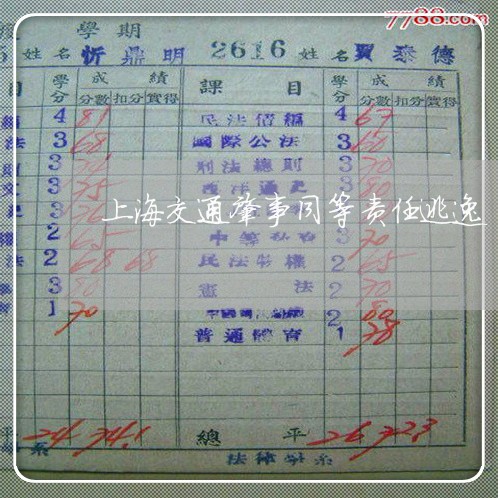 7788.com
學期
姓名忻鼎明 2616 姓名賈泰德
目 學分 成績 課目 學分 成績
分數 扣分 實得 分數 扣分 實得
4 81 民法債編 4 67
法 3 68 國際公法 3 60
3 刑法總則 3 70
3 75 3 80
上海交通肇事同等责任逃逸
權 2 65 3 70
法 2 68 68 民法物權 2 65
3 80 憲法 2 70
育 1 70 2 80
普通體育 1 78
平 24 74.1 總平 26 72.3
系 法律學系